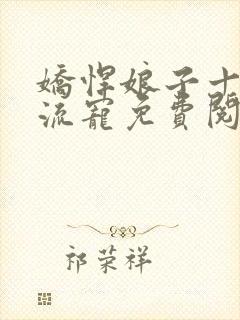 嬌悍娘子十
流寵免費閱
祁荣祥